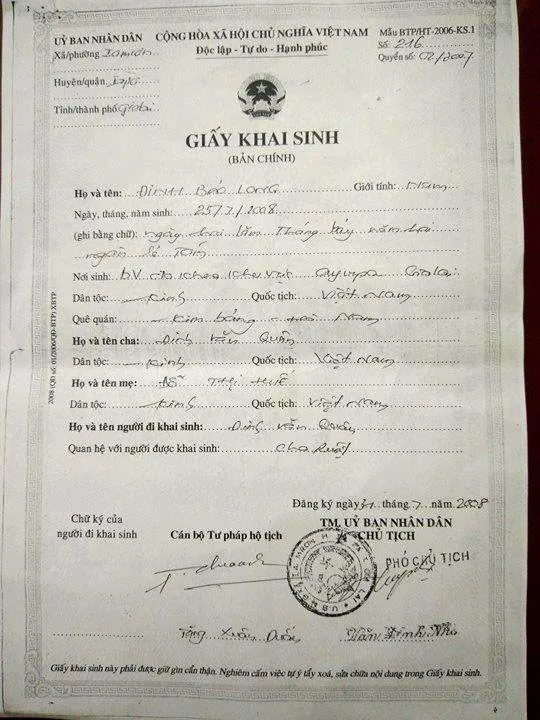 ỦY BAN NHÂN DÂN
CỘNG HÒA XÃ HỘI CHỦ NGHĨA VIỆT NAM
Mẫu BTP/HT-2006-KS.1
Xã/phường
Độc lập - Tự do - Hạnh phúc
Số: 216
Quyển số: 02/2007
Huyện/quận
Tỉnh/thành phố
GIẤY KHAI SINH
(BẢN CHÍNH)
Họ và tên: ĐINH BẢO LONG Giới tính: Nam
Ngày, tháng, năm sinh: 25/7/2008
(ghi bằng chữ): ngày hai lăm tháng bảy năm hai
ngàn lẻ tám
Nơi sinh: BV Gia Lai
Dân tộc: Kinh Quốc tịch: Việt Nam
Quê quán: Kim Bảng - Hà Nam
Họ và tên cha: Đinh Văn Quân
Dân tộc: Kinh Quốc tịch: Việt Nam
Họ và tên mẹ: ĐỖ THỊ HUẾ
Dân tộc: Kinh Quốc tịch: Việt Nam
Họ và tên người đi khai sinh: Đinh Văn Quân
Quan hệ với người được khai sinh: Cha ruột
2008 (QĐ số: 01/2006/QĐ-BTP) XBTP
Đăng ký ngày 31 tháng 7 năm 2008
Chữ ký của
người đi khai sinh
Cán bộ Tư pháp hộ tịch
TM. ỦY BAN NHÂN DÂN
CHỦ TỊCH
PHÓ CHỦ TỊCH
Tặng Xuân
Giấy khai sinh này phải được giữ gìn cẩn thận. Nghiêm cấm việc tự ý tẩy xoá, sửa chữa nội dung trong Giấy khai sinh.